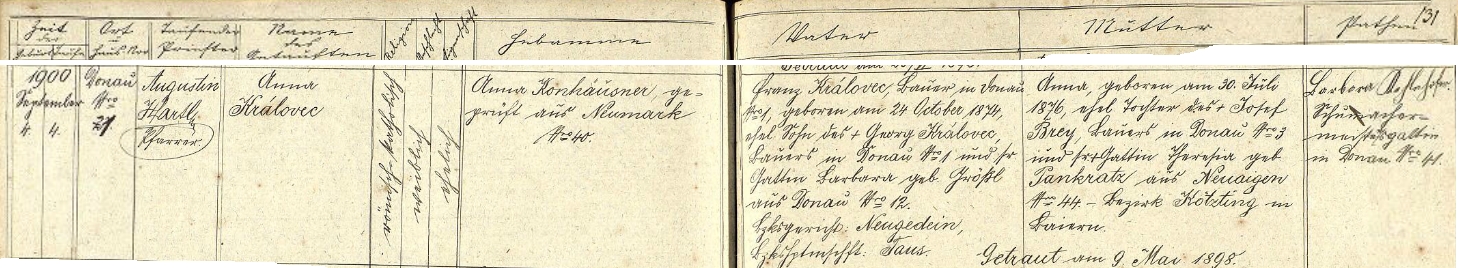 131
Zeit
der
Geburt Taufe
Ort
Haus-Nro
Taufender
Priester
Name
des
Getauften
Religion
Geschlecht
Hebamme
Vater
Mutter
Pathen
1900
September
4. 4.
Donau
Nro
21
Augustin
Hartl,
Pfarrer.
Anna
Královec
römisch-katholisch
weiblich
ehelich
Anna Konhäusner, ge-
prüft aus Neumark
Nro 40.
Franz Královec, Bauer in Donau
Nro 1, geboren am 24 October 1874,
ehel Sohn des + Georg Královec,
Bauers in Donau Nro 1 und sr
Gattin Barbara geb. Größl
aus Donau Nro 12.
Bzksgericht: Neugedein,
Bzkshptmschft: Taus.
Anna, geboren am 30. Juli
1876, ehel Tochter des + Josef
Brey, Bauers in Donau Nro 3
und sr + Gattin Theresia geb
Pankratz aus Neuaigen
Nro 44 - Bezirk Kötzting in
Baiern.
Getraut am 9. Mai 1898.
Barbara
Schumacher-
meistersgattin
in Donau Nro 41.